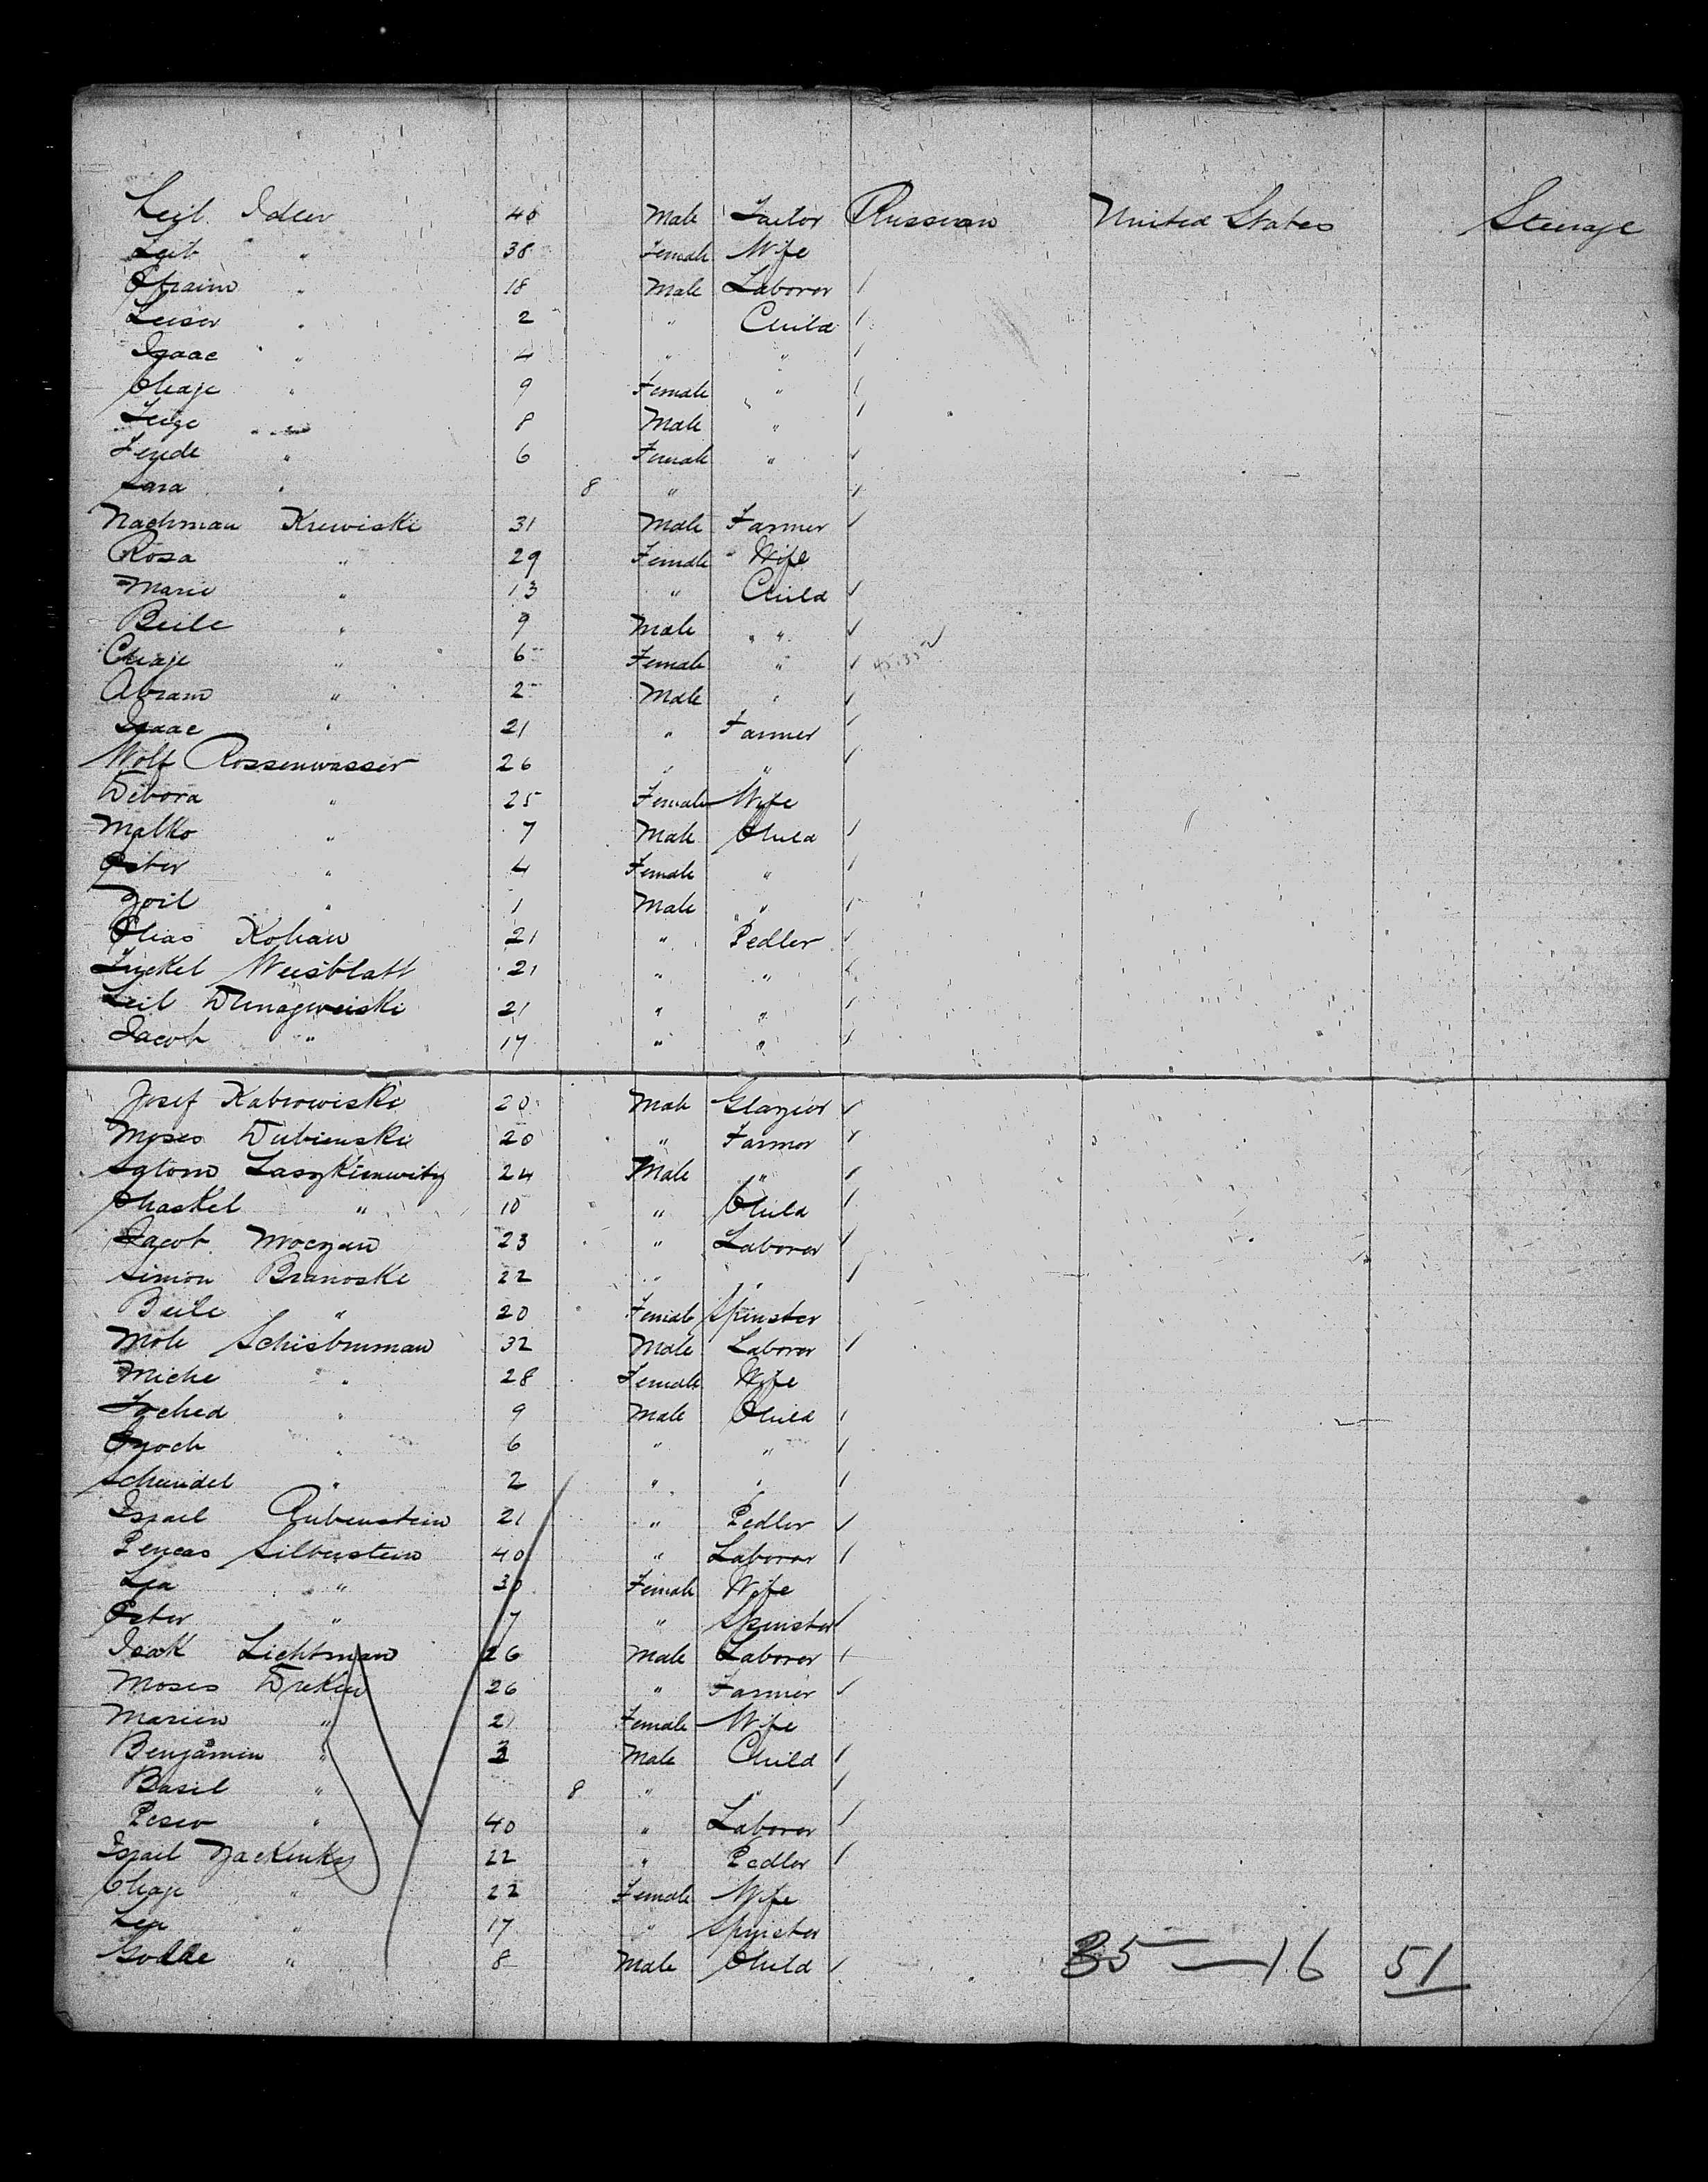 Leib Idler 40 Male Tailor Russian United States Steerage
Leib " 38 Female Wife
Efraim " 18 Male Laborer
Leiser " 2 " Child
Isaac " 4 " "
Chaje " 9 Female "
Leize " 8 Male "
Fende " 6 Female "
Sara " 8 "
Nachman Krewiski 31 Male Farmer
Rosa " 29 Female Wife
Marie " 13 " Child
Beile " 9 Male "
Chaje " 6 Female "
Abram " 2 Male "
Isaac " 21 " Farmer
Wolf Rossenwasser 26 " "
Debora " 25 Female Wife
Malko " 7 Male Child
Ester " 4 Female "
Zoil " 1 Male "
Elias Kohan 21 " Pedler
Weisblatt 21 " "
Leib 21 " "
Jacob " 17 " "
Josef Kabrowiski 20 Male Glazier
Moses Dubienski 20 " Farmer
24 Male "
Chaskel " 10 " Child
Jacob Moczan 23 " Laborer
Simon Branoske 22 " "
Beile " 20 Female Spinster
Mole Schisbrunman 32 Male Laborer
Miche " 28 Female Wife
Joched " 9 Male Child
Enoch " 6 " "
Scheindel " 2 " "
Israel Rubenstein 21 " Pedler
Pencas Silberstein 40 " Laborer
Lea " 30 Female Wife
Ester " 7 " Spinster
Isak Lichtman 26 Male Laborer
Moses Drekin 26 " Farmer
Marien " 21 Female Wife
Benjamin " 3 Male Child
Basil " 8 " "
Peser " 40 " Laborer
Israel 22 " Pedler
Chaje " 22 Female Wife
Lea " 17 " Spinster
Golde " 8 Male Child
35 — 16 51